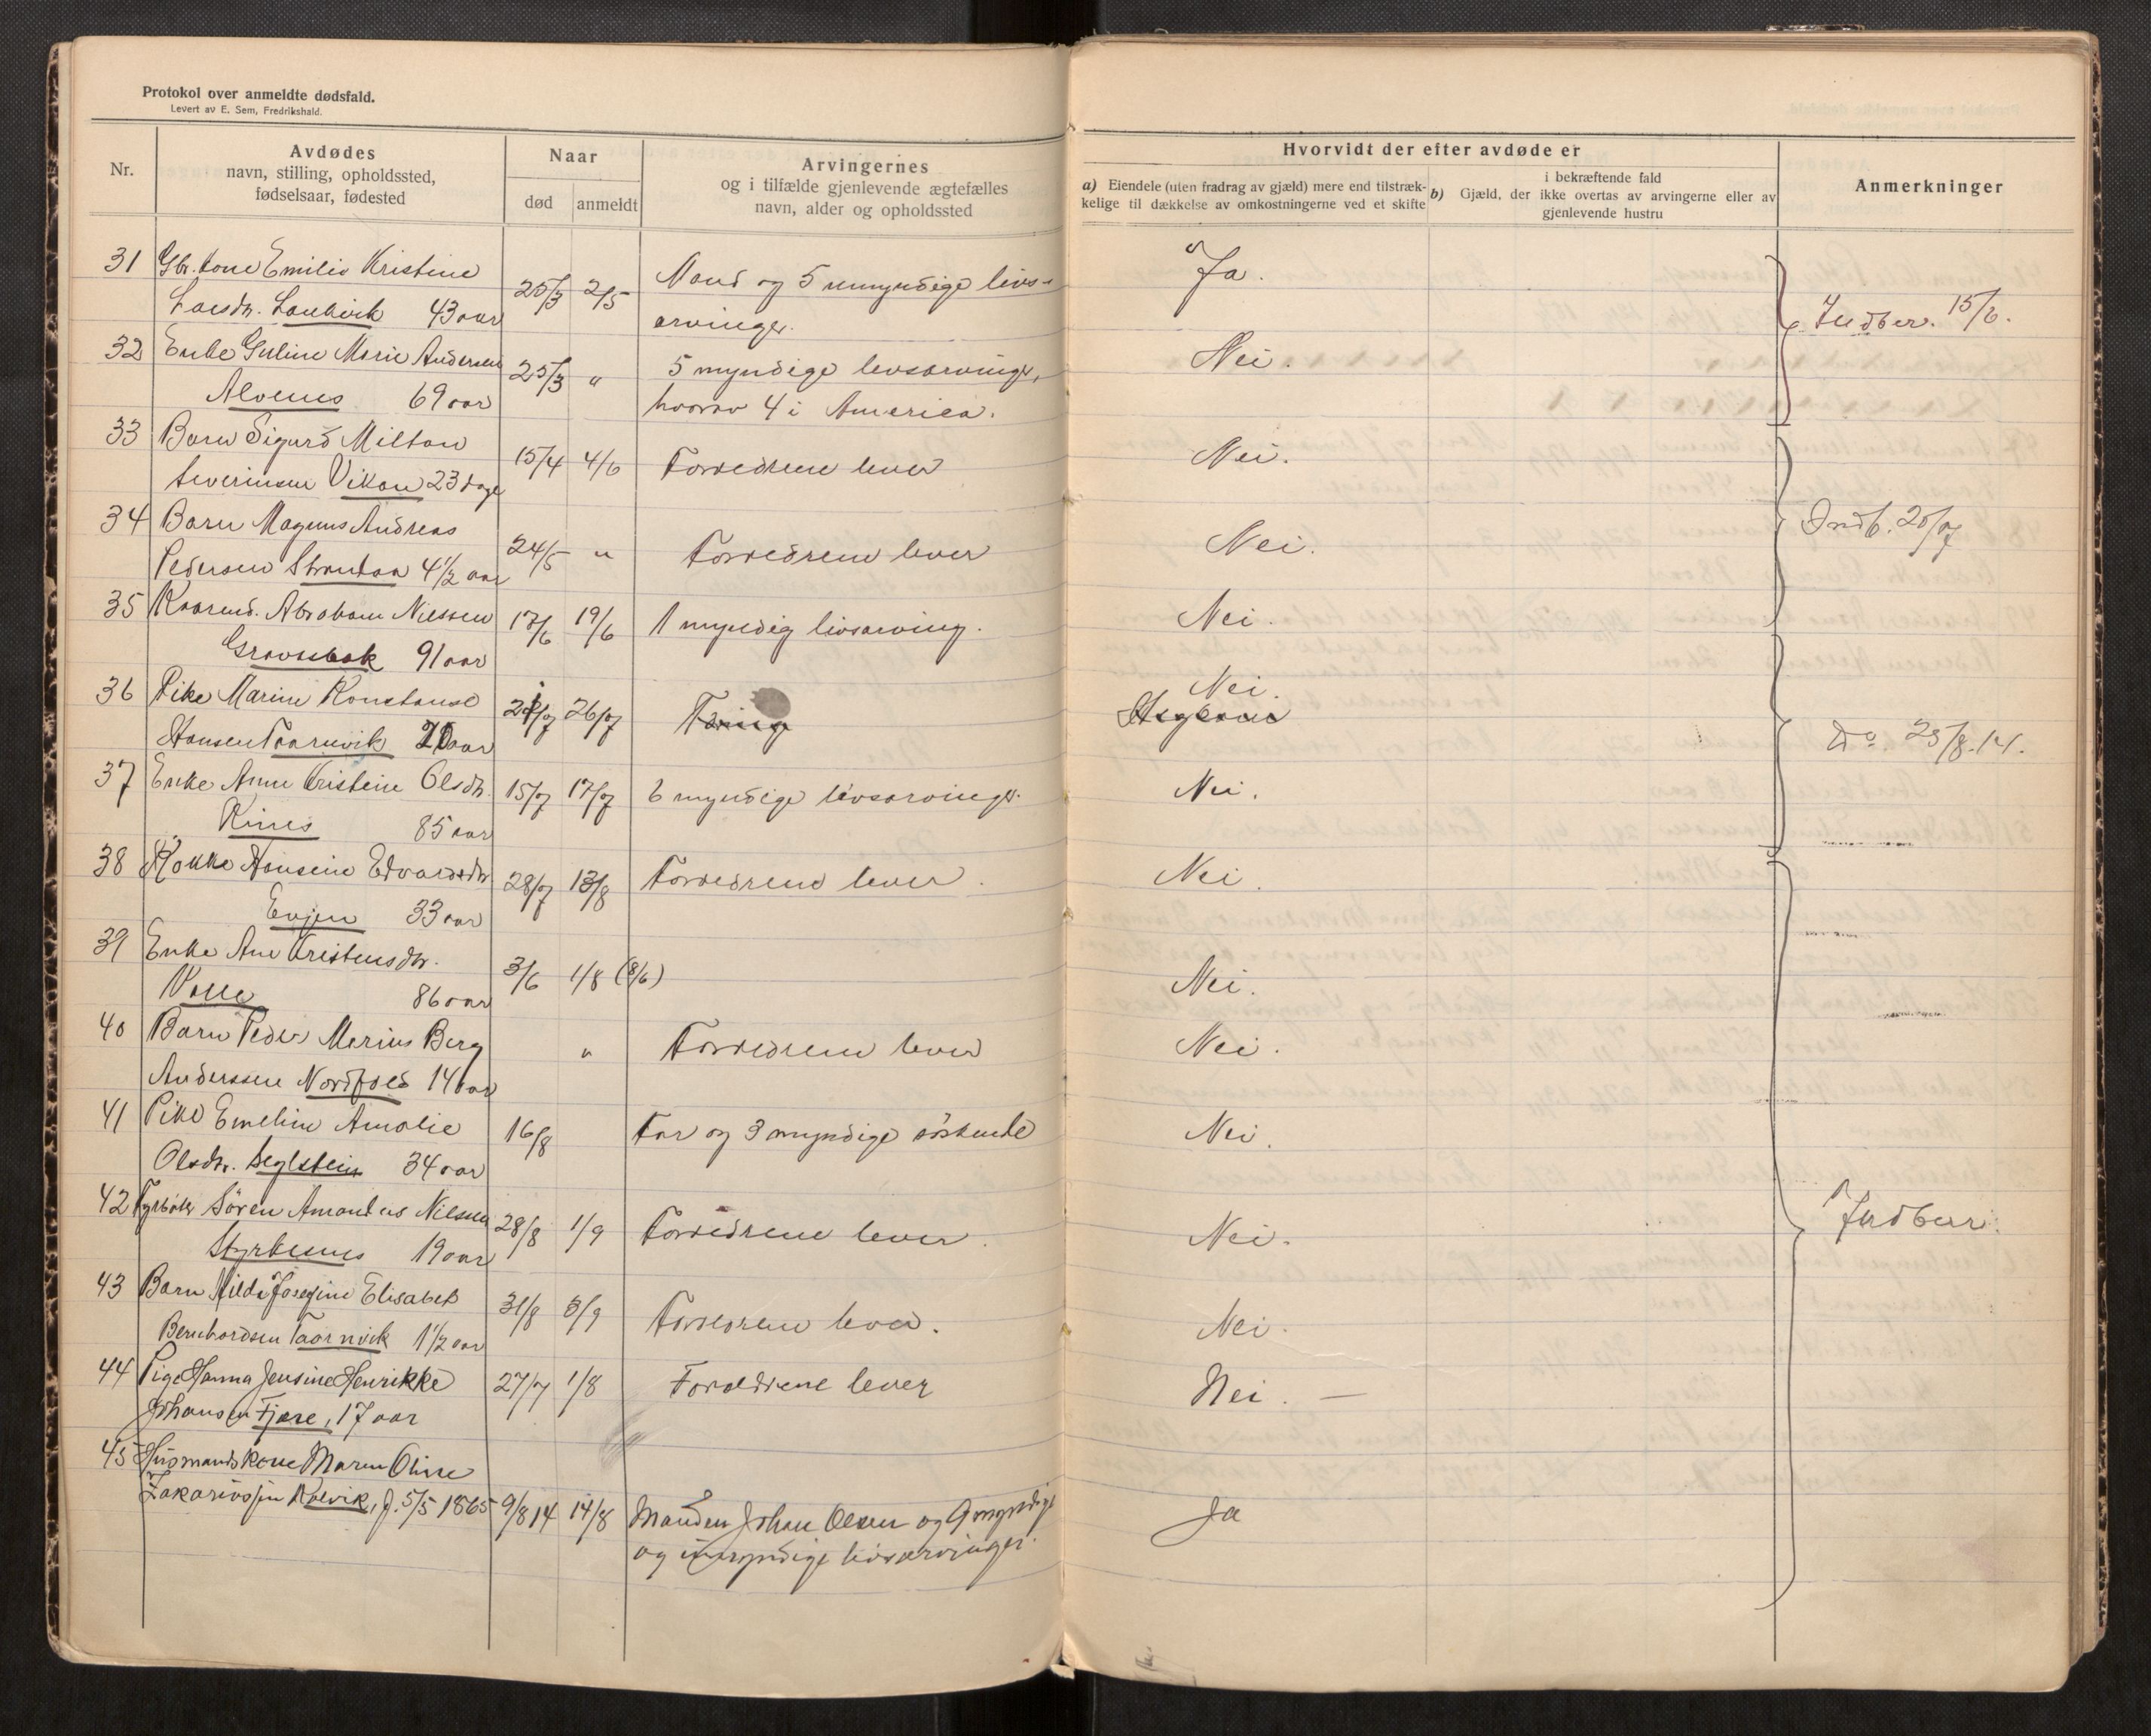 Protokol over anmeldte dødsfald.
Levert av E. Sem, Fredrikshald.
Nr.
Avdødes
navn, stilling, opholdssted,
fødselsaar, fødested
Naar
død
anmeldt
Arvingernes
og i tilfælde gjenlevende ægtefælles
navn, alder og opholdssted
Hvorvidt der efter avdøde er
a) Eiendele (uten fradrag av gjæld) mere end tilstræk-
kelige til dækkelse av omkostningerne ved et skifte
b) Gjæld, der
i bekræftende fald
ikke overtas av arvingerne eller av
gjenlevende hustru
Anmerkninger
31 Gbr. kone Emilie Kristine
Larsdr. 43 aar
25/3 2/5
Mand og 5 umyndige livs-
arvinger.
Ja.
Indber. 15/6.
32 Enke Guline Marie Andersen
Alvenes 69 aar
25/3 "
5 myndige livsarvinger,
hvorav 4 i America.
Nei.
33 Barn Sigurd Milton
Severinsen Vikan 23 dage
15/4 4/6
Forældrene lever
Nei.
34 Barn Magnus Andreas
Pedersen Strandaa 4 1/2 aar
24/5 "
Forældrene lever
Nei.
Indb. 20/7
35 Kaarmd. Abraham Nilssen
91 aar
17/6 19/6
1 myndig livsarving.
Nei.
36 Pike Marine Konstanse
Hansen Taarnvik 21 aar
26/7
Nei.
Do. 23/8.14.
37 Enke Anne Kristine Olsdr.
Rines 85 aar
15/7 17/7
6 myndige livsarvinger.
Nei.
38 Kokke Hansine Edvardsdr
Evjen 33 aar
28/7 13/8
Forældrene lever.
Nei.
39 Enke Ane Kristensdr.
Valle 86 aar
3/6 1/8 (8/6)
Nei.
40 Barn Peder Marius Berg
Anderssen Nordfold 14 aar
"
Forældrene lever
Nei.
41 Pike Emeline Amalie
Olsdr. Seglstein 34 aar
16/8
Far og 3 myndige søskende
Nei.
42 Fyrbøter Søren Amandus Nilsen
Styrkesnes 19 aar
28/8 1/9
Forældrene lever.
Nei.
Indberr.
43 Barn Hilda Josefine Elisabet
Bernhardsen Taarnvik 1 1/2 aar
31/8 3/9
Forældrene lever.
Nei.
44 Pige Hanna Jensine Henrikke
Johansen Fjære, 17 aar
27/7 1/8
Forældrene lever
Nei. —
45 Husmandskone Maren Oline
Zakariassen Kalvik, f. 5/5 1865
9/8 14 14/8
Manden Johan Olsen og 9 myndige
og umyndige livsarvinger.
Ja